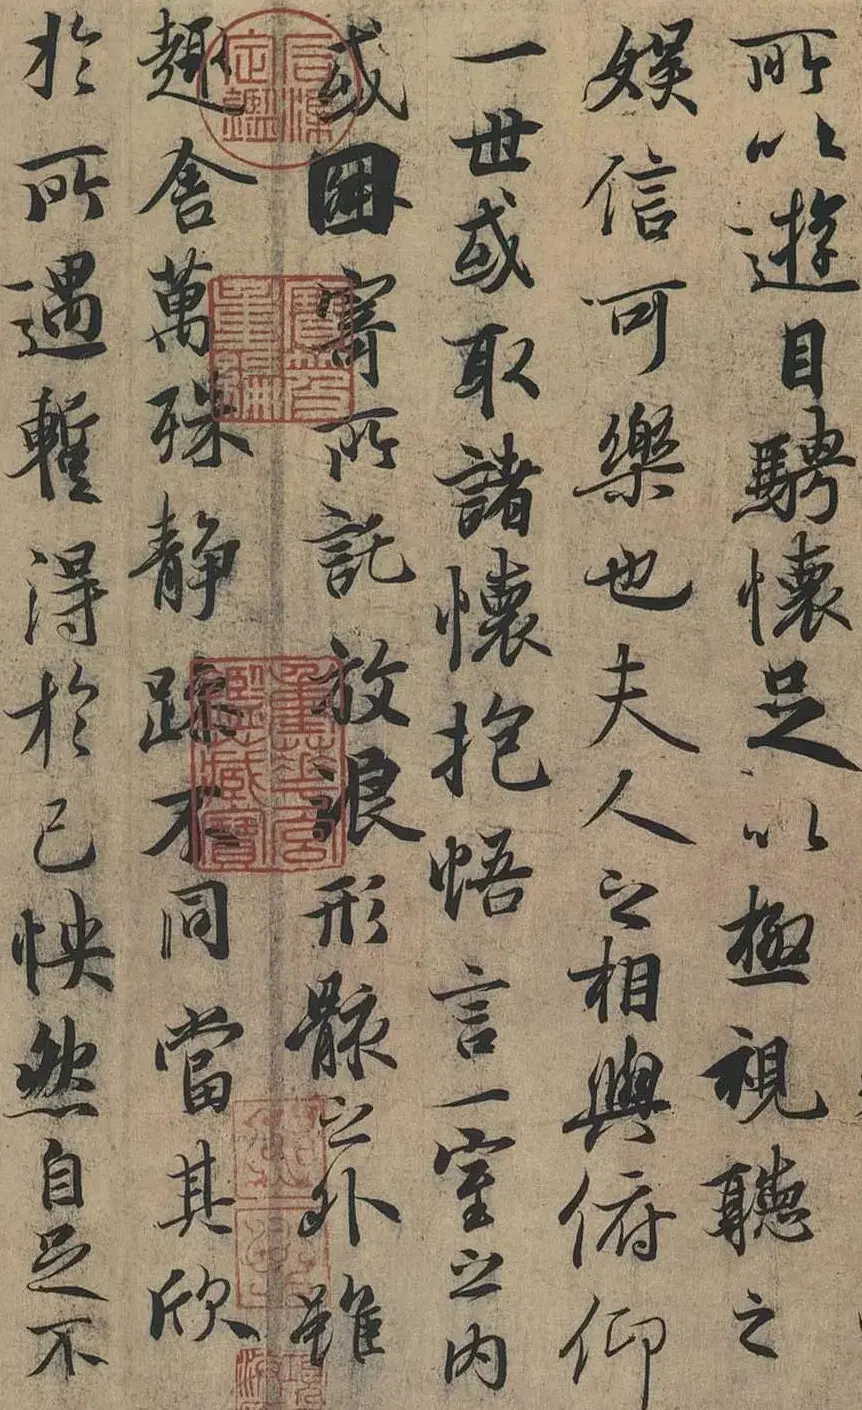 所以遊目騁懷足以極視聽之
娛信可樂也夫人之相與俯仰
一世或取諸懷抱悟言一室之內
或因寄所託放浪形骸之外雖
趣舍萬殊靜躁不同當其欣
於所遇暫得於己怏然自足不
石渠定鑑
寶笈重編
重華宮鑑藏寶